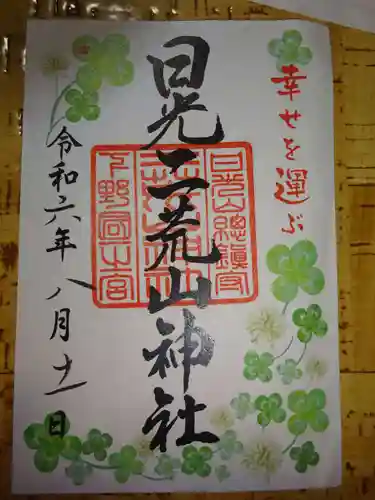 幸せを運ぶ
日光二荒山神社
日光山総鎮守
下野国一之宮
令和六年 八月十一日